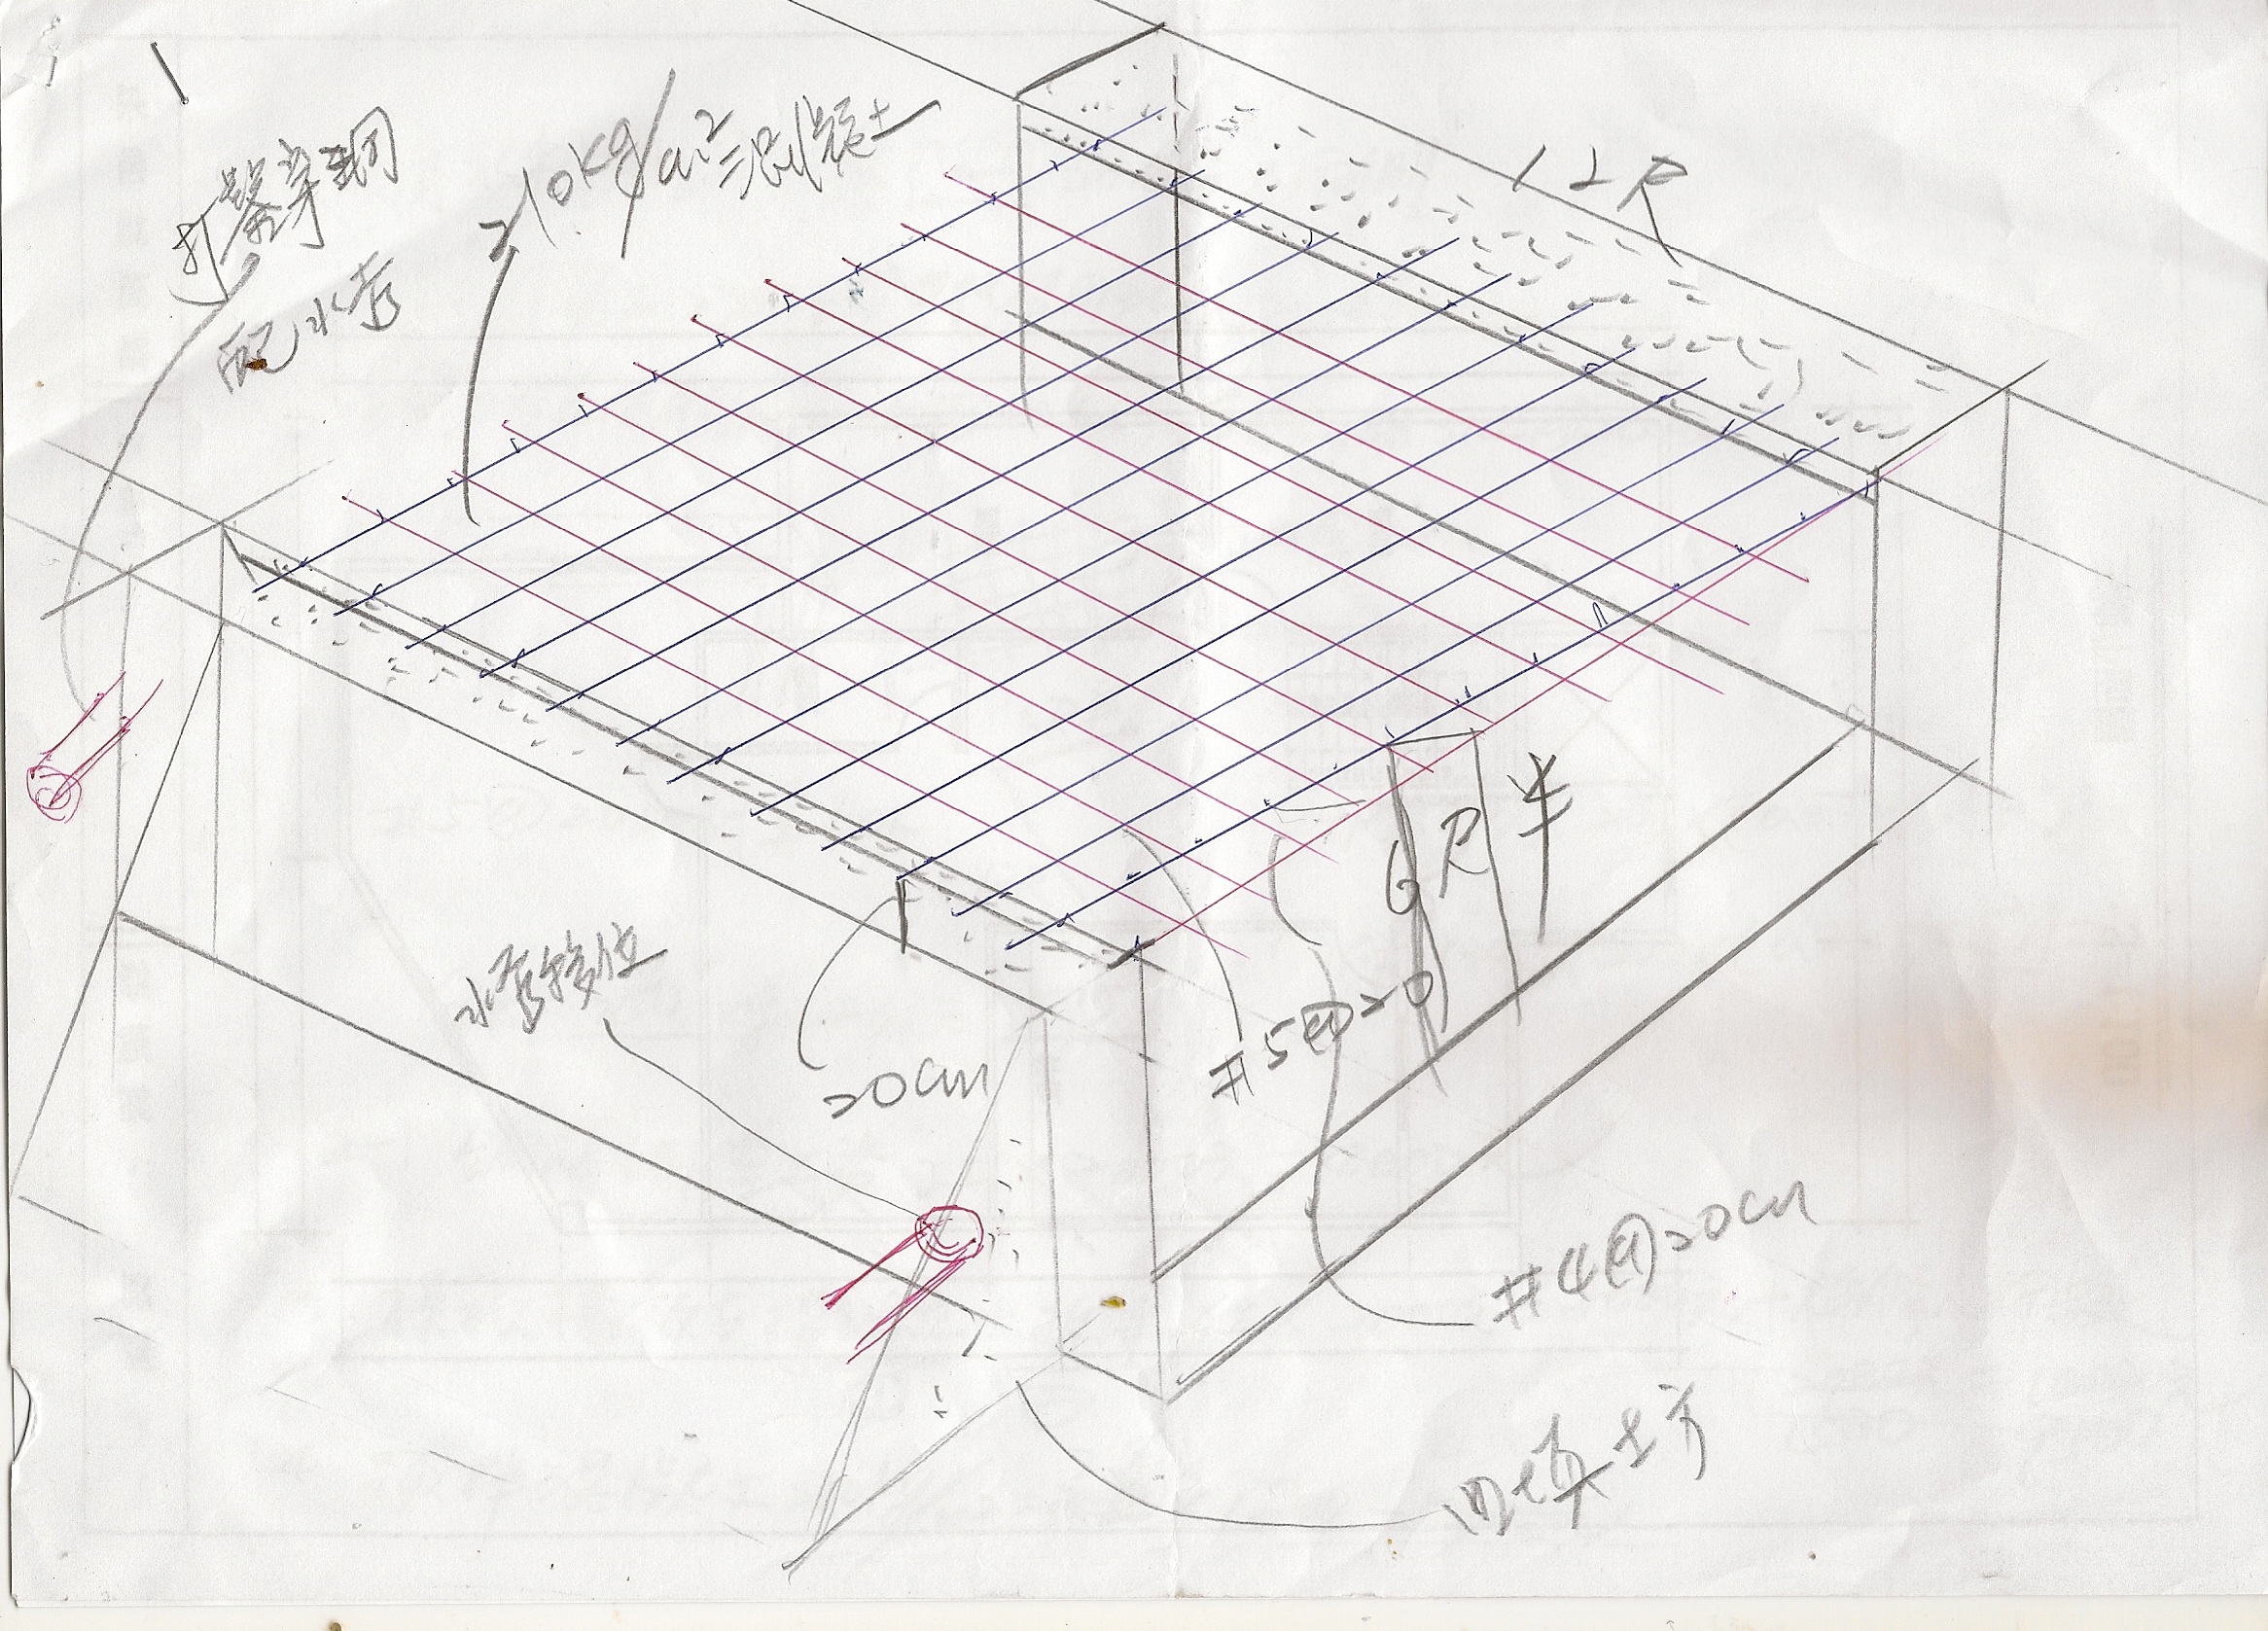 打鑿穿孔
配水管
210kg/cm2混凝土
12尺
6尺半
水管移位
20cm
#5@20
#4@20cm
回填土方